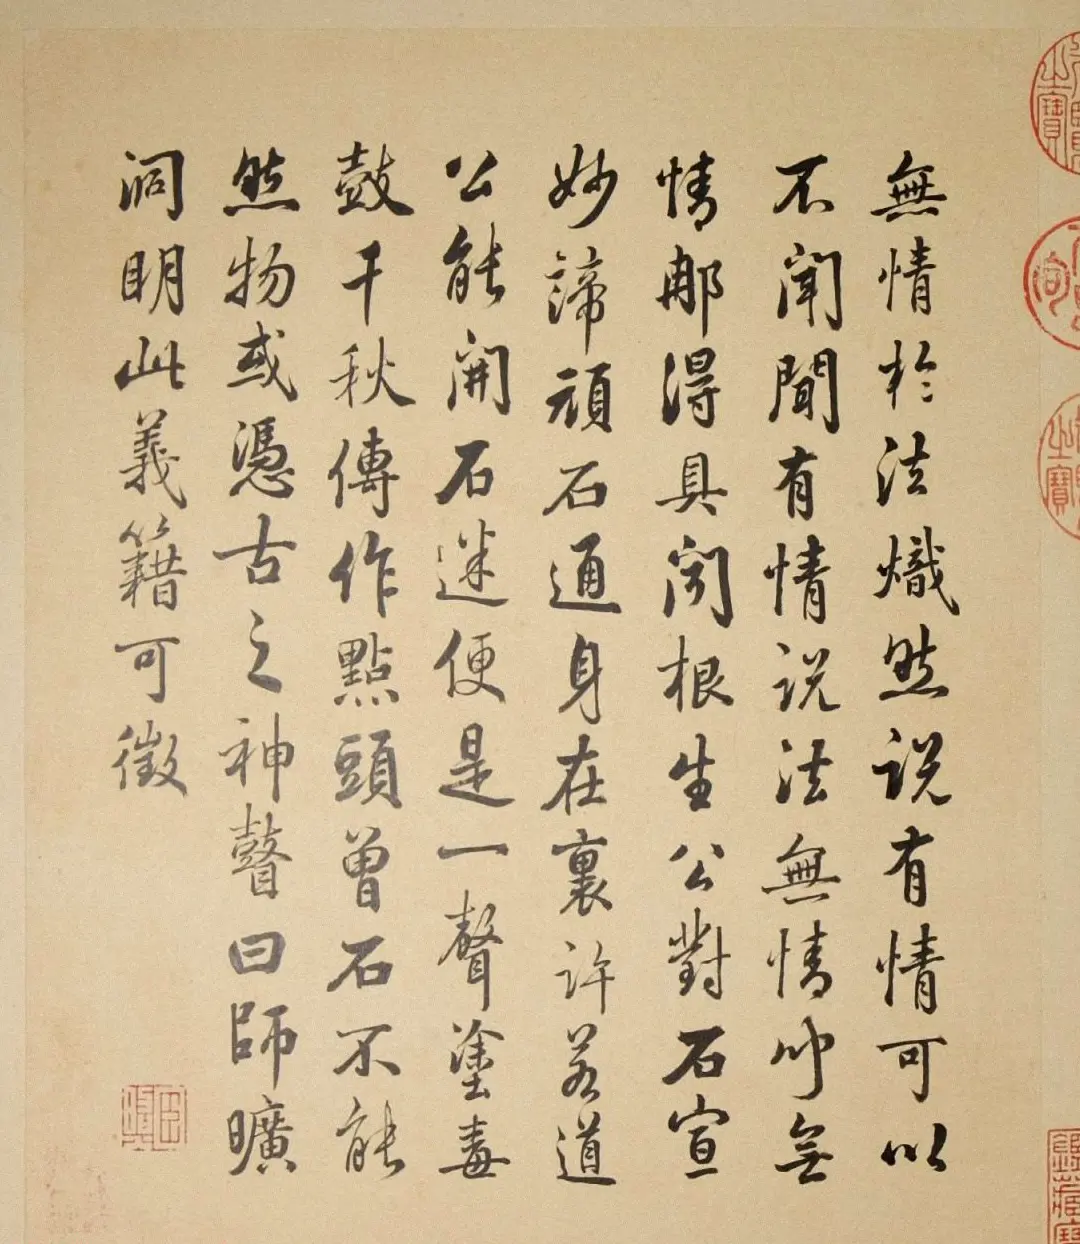 無情於法熾然說有情可以
不聞聞有情說法無情無
情那得具聞根生公對石宣
妙諦頑石通身在裏許若道
公能開石迷便是一聲塗毒
鼓千秋傳作點頭曾石不能
然物或憑古之神瞽曰師曠
洞明此義籍可徵